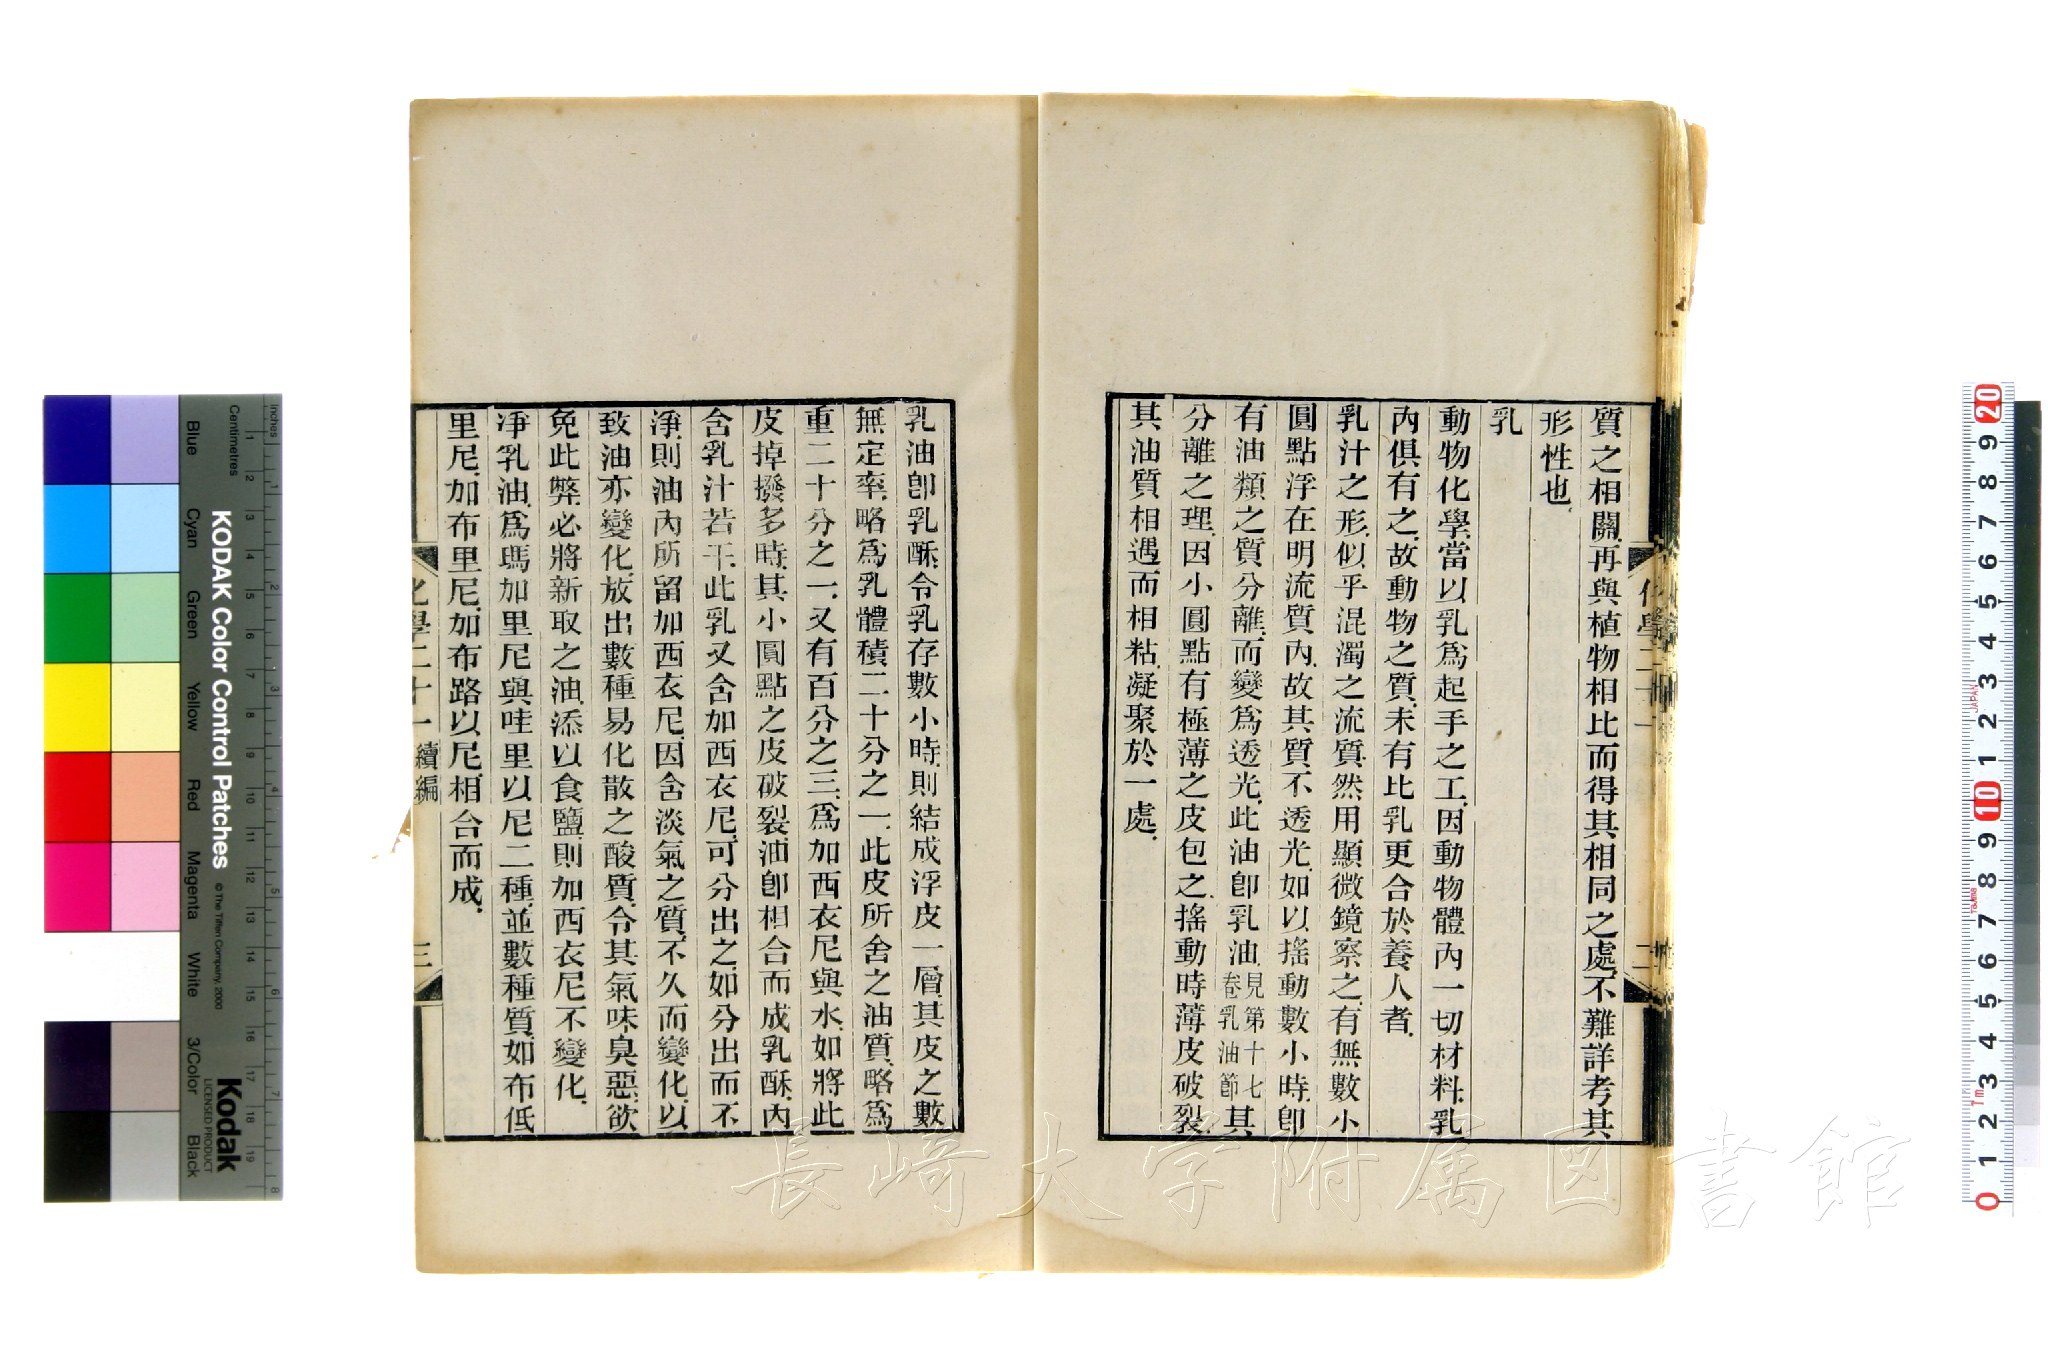 質之相關再與植物相比而得其相同之處不難詳考其
形性也
乳
動物化學當以乳爲起手之工因動物體內一切材料乳
內俱有之故動物之質未有比乳更合於養人者
乳汁之形似乎混濁之流質然用顯微鏡察之有無數小
圓點浮在明流質內故其質不透光如以搖動數小時卽
有油類之質分離而變爲透光此油卽乳油見第十七卷乳油節其
分離之理因小圓點有極薄之皮包之搖動時薄皮破裂
其油質相遇而相粘凝聚於一處
乳油卽乳酥令乳存數小時則結成浮皮一層其皮之數
無定率略爲乳體積二十分之一此皮所含之油質略爲
重二十分之一又有百分之三爲加西衣尼與水如將此
皮掉撥多時其小圓點之皮破裂油卽相合而成乳酥內
含乳汁若干此乳又含加西衣尼可分出之如分出而不
淨則油內所留加西衣尼因含淡氣之質不久而變化以
致油亦變化放出數種易化散之酸質令其氣味臭惡欲
免此弊必將新取之油添以食鹽則加西衣尼不變化
淨乳油爲瑪加里尼與哇里以尼二種並數種質如布低
里尼加布里尼加布路以尼相合而成
化學二十一 續編
三
KODAK Color Control Patches
© The Tiffen Company, 2000
Kodak
LICENSED PRODUCT
Inches
Centimetres
Blue
Cyan
Green
Yellow
Red
Magenta
White
3/Color
Black
長崎大学附属図書館